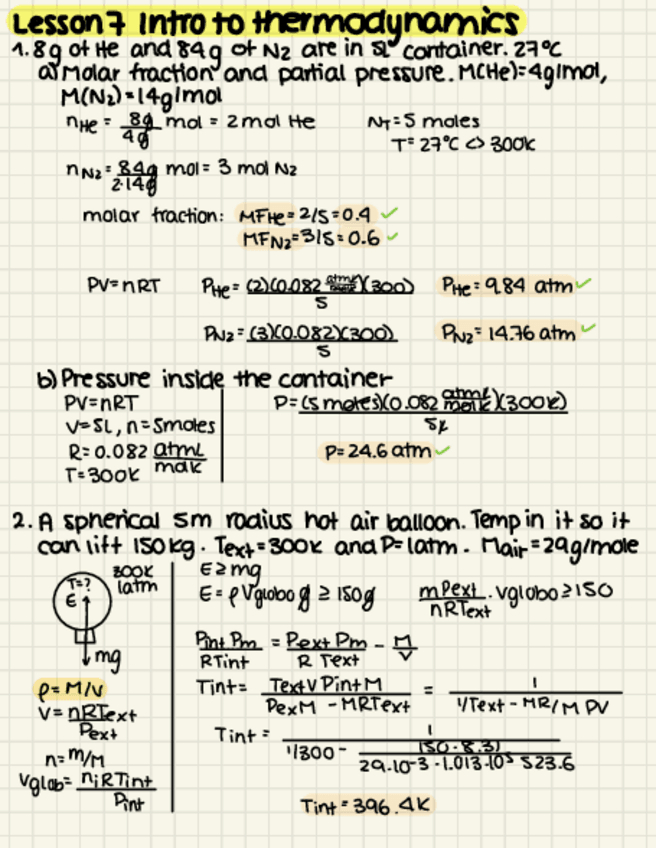 Lesson 7 Intro to thermodynamics
1. 8g of He and 84g of N2 are in 5L container. 27°C
a) Molar fraction and partial pressure. M(He)=4g/mol,
M(N2)=14g/mol
nHe = 8g/4g mol = 2 mol He
NT=5 moles
T=27°C <> 300K
nN2 = 84g/2·14g mol = 3 mol N2
molar fraction: MFHe=2/5=0.4 ✓
MFN2=3/5=0.6 ✓
PV=nRT PHe=(2)(0.082 atmL/molK)(300)/5 PHe=9.84 atm ✓
PN2=(3)(0.082)(300)/5 PN2=14.76 atm ✓
b) Pressure inside the container
PV=nRT
V=5L, n=5moles
R=0.082 atmL/molK
T=300K
P=(5 moles)(0.082 atmL/molK)(300K)/5L
P=24.6 atm ✓
2. A spherical 5m radius hot air balloon. Temp in it so it
can lift 150kg. Text=300K and P=1atm. Mair=29g/mole
T=?
E
300K
1atm
mg
ρ=M/V
V=nRText/Pext
n=m/M
Vglob=niRTint/Pint
E≥mg
E=ρVglobo g ≥ 150g mPext/nRText · Vglobo≥150
Pint Pm/RTint = Pext Pm/R Text - M/V
Tint= TextV PintM/PexM - MRText = 1/1/Text - MR/M PV
Tint = 1/1/300 - 150·8.31/29·10-3·1.013·105 523.6
Tint=396.4K